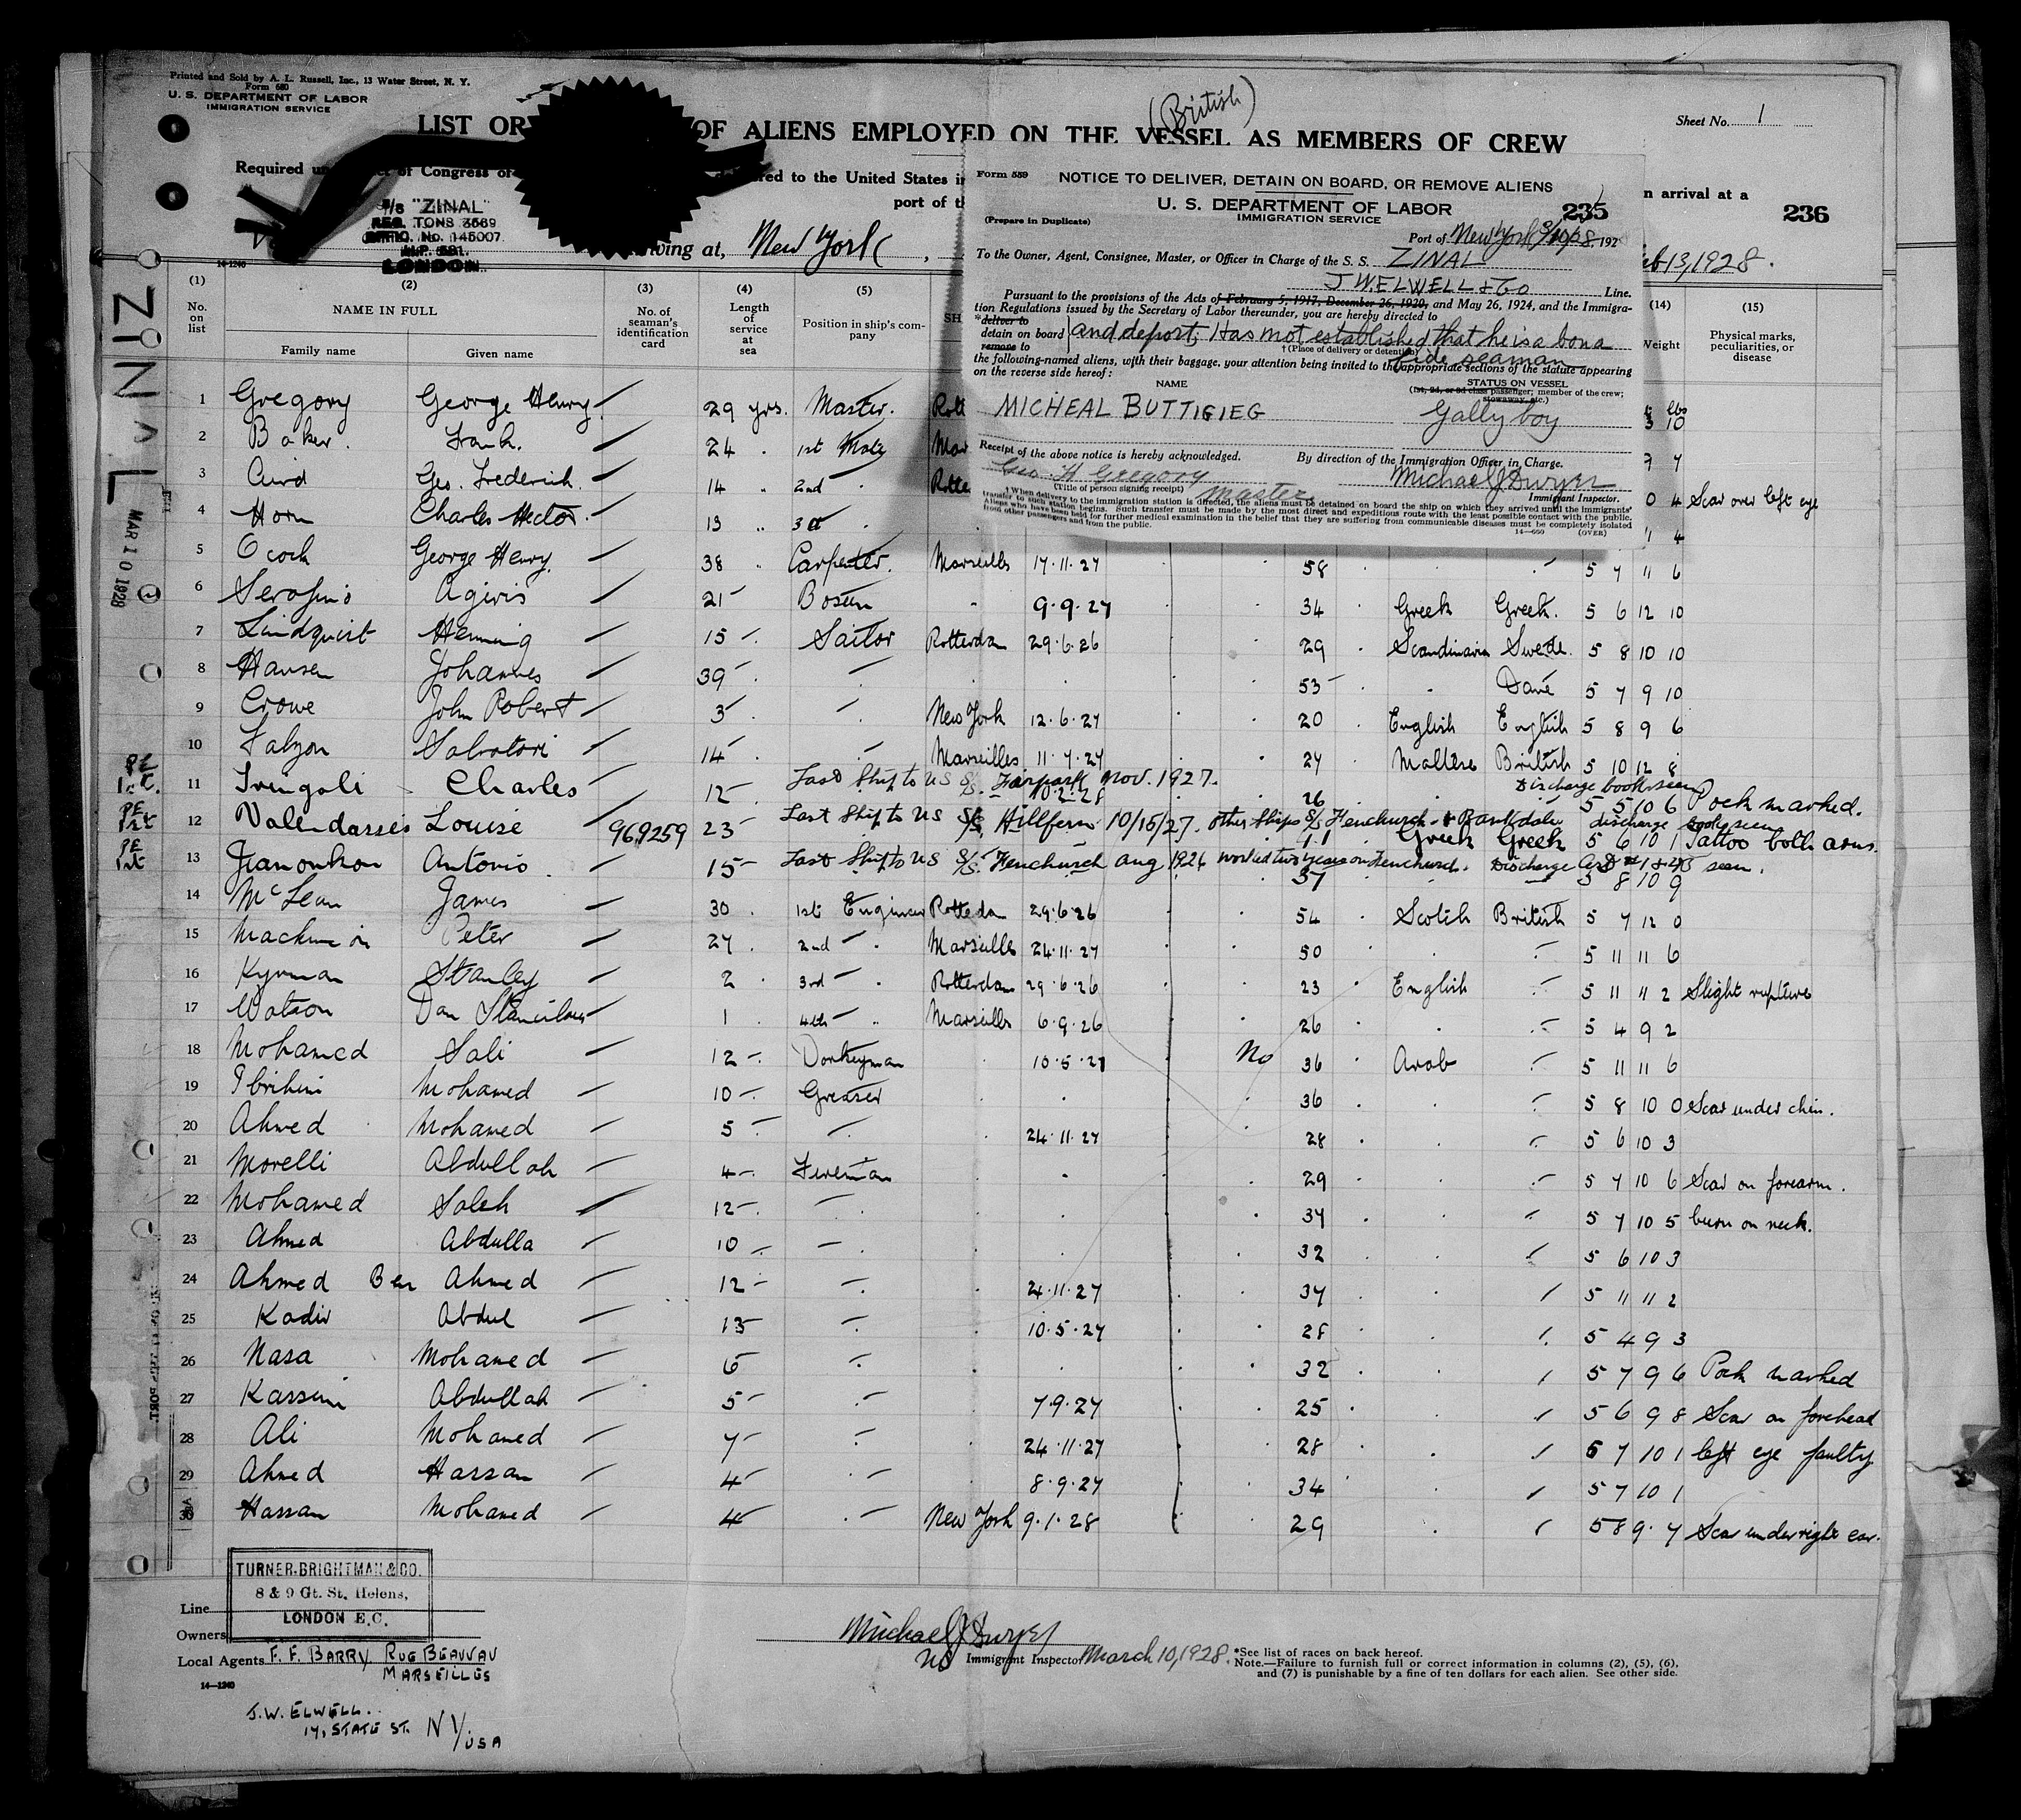 Printed and Sold by A. L. Russell, Inc., 13 Water Street, N. Y.
Form 680
U. S. DEPARTMENT OF LABOR
IMMIGRATION SERVICE
(British)
Sheet No. 1
LIST OR OF ALIENS EMPLOYED ON THE VESSEL AS MEMBERS OF CREW
Required of Congress to the United States
n arrival at a
port of
236
S/S "ZINAL"
REG. TONS 3569
No. 145007
LONDON
at, New York,
13, 1928.
14-1240
(1) (2) (3) (4) (5) (14) (15)
No. on list
NAME IN FULL
Family name Given name
No. of seaman's identification card
Length of service at sea
Position in ship's company
Weight
Physical marks, peculiarities, or disease
Form 559
NOTICE TO DELIVER, DETAIN ON BOARD, OR REMOVE ALIENS
U. S. DEPARTMENT OF LABOR
235
(Prepare in Duplicate)
IMMIGRATION SERVICE
Port of New York 3/10/28 192
To the Owner, Agent, Consignee, Master, or Officer in Charge of the S. S. ZINAL
J W. ELWELL & Co Line.
Pursuant to the provisions of the Acts of February 5, 1917, December 26, 1920, and May 26, 1924, and the Immigra-
tion Regulations issued by the Secretary of Labor thereunder, you are hereby directed to
*deliver to
detain on board and deport; Has not established that he is a bona
remove to
†(Place of delivery or detention)
fide seaman
the following-named aliens, with their baggage, your attention being invited to the appropriate sections of the statute appearing
on the reverse side hereof:
NAME
STATUS ON VESSEL
(1st, 2d, or 3d class passenger; member of the crew;
stowaway, etc.)
MICHEAL BUTTIGIEG Gally boy
Receipt of the above notice is hereby acknowledged.
By direction of the Immigration Officer in Charge.
Geo. H Gregory
Michael J Dwyer
(Title of person signing receipt)
Master
Immigrant Inspector.
†When delivery to the immigration station is directed, the aliens must be detained on board the ship on which they arrived until the immigrants'
transfer to such station begins. Such transfer must be made by the most direct and expeditious route with the least possible contact with the public.
Aliens who have been held for further medical examination in the belief that they are suffering from communicable diseases must be completely isolated
from other passengers and from the public.
14—660 (OVER)
ZINAL
MAR 10 1928
1 Gregory George Henry 29 yrs. Master. lbs 10
2 Baker. Frank. 24 1st Mate 7
3 Geo. Frederick. 14 2nd 4 Scar over left eye
4 Horn Charles Hector. 13 3rd 4
5 Ocock George Henry. 38 Carpenter. Marseilles 17.11.27 58 5 7 11 6
6 Serafino Agivis 21 Bosun 9.9.27 34 Greek Greek. 5 6 12 10
7 Lindquist Henning 15 Sailor Rotterdam 29.6.26 29 Scandinavia Swede. 5 8 10 10
8 Hansen Johannes 39 53 Dane 5 7 9 10
9 Crowe John Robert 3 New York 12.6.27 20 English English 5 8 9 6
10 Falzon Salvatori 14 Marseilles 11.7.27 27 Maltese British 5 10 12 8
Last Ship to US S/S. Fairpark Nov. 1927. Discharge book seen
11 Tringali Charles 12 10.2.28 26 5 5 10 6 Pock marked.
Last Ship to US S/S Hillfern 10/15/27. other Ships S/S Fenchurch + discharge book seen
12 Valendasses Louise 969259 23 Greek Greek 5 6 10 1 Tattoo both arms
Last Ship to US S/S. Fenchurch Aug 1926 worked two years on Fenchurch. Discharge seen.
13 Antonio 15 37 5 8 10 9
14 McLean James 30 1st Engineer Rotterdam 29.6.26 54 Scotch British 5 7 12 0
15 Peter 27 2nd Marseilles 24.11.27 50 5 11 11 6
16 Kynman Stanley 2 3rd Rotterdam 29.6.26 23 English 5 11 11 2 Slight rupture
17 Watson Dan 1 4th Marseilles 6.9.26 26 5 4 9 2
18 Mohamed Sali 12 Donkeyman 10.5.27 No 36 Arab 5 11 11 6
19 Ibrihim Mohamed 10 Greaser 36 5 8 10 0 Scar under chin.
20 Ahmed Mohamed 5 24.11.27 28 5 6 10 3
21 Morelli Abdullah 4 Fireman 29 5 7 10 6 Scar on forearm.
22 Mohamed Saleh 12 37 5 7 10 5 burn on neck.
23 Ahmed Abdulla 10 32 5 6 10 3
24 Ahmed Ben Ahmed 12 24.11.27 37 5 11 11 2
25 Kadir Abdul 13 10.5.27 28 5 4 9 3
26 Nasa Mohamed 6 32 5 7 9 6 Pock marked
27 Kassim Abdullah 5 7.9.27 25 5 6 9 8 Scar on forehead
28 Ali Mohamed 7 24.11.27 28 5 7 10 1 left eye faulty
29 Ahmed Hassan 4 8.9.27 34 5 7 10 1
30 Hassan Mohamed 4 New York 9.1.28 29 5 8 9.7 Scar under right ear.
TURNER, BRIGHTMAN & CO.
8 & 9 Gt. St. Helens,
LONDON E.C.
Line
Owners
Local Agents F. F. BARRY RUE BEAUVAU
MARSEILLES
14—1240
J. W. ELWELL..
17, STATE ST. NY/USA
Michael J Dwyer
US Immigrant Inspector March 10, 1928.
*See list of races on back hereof.
Note.—Failure to furnish full or correct information in columns (2), (5), (6),
and (7) is punishable by a fine of ten dollars for each alien. See other side.